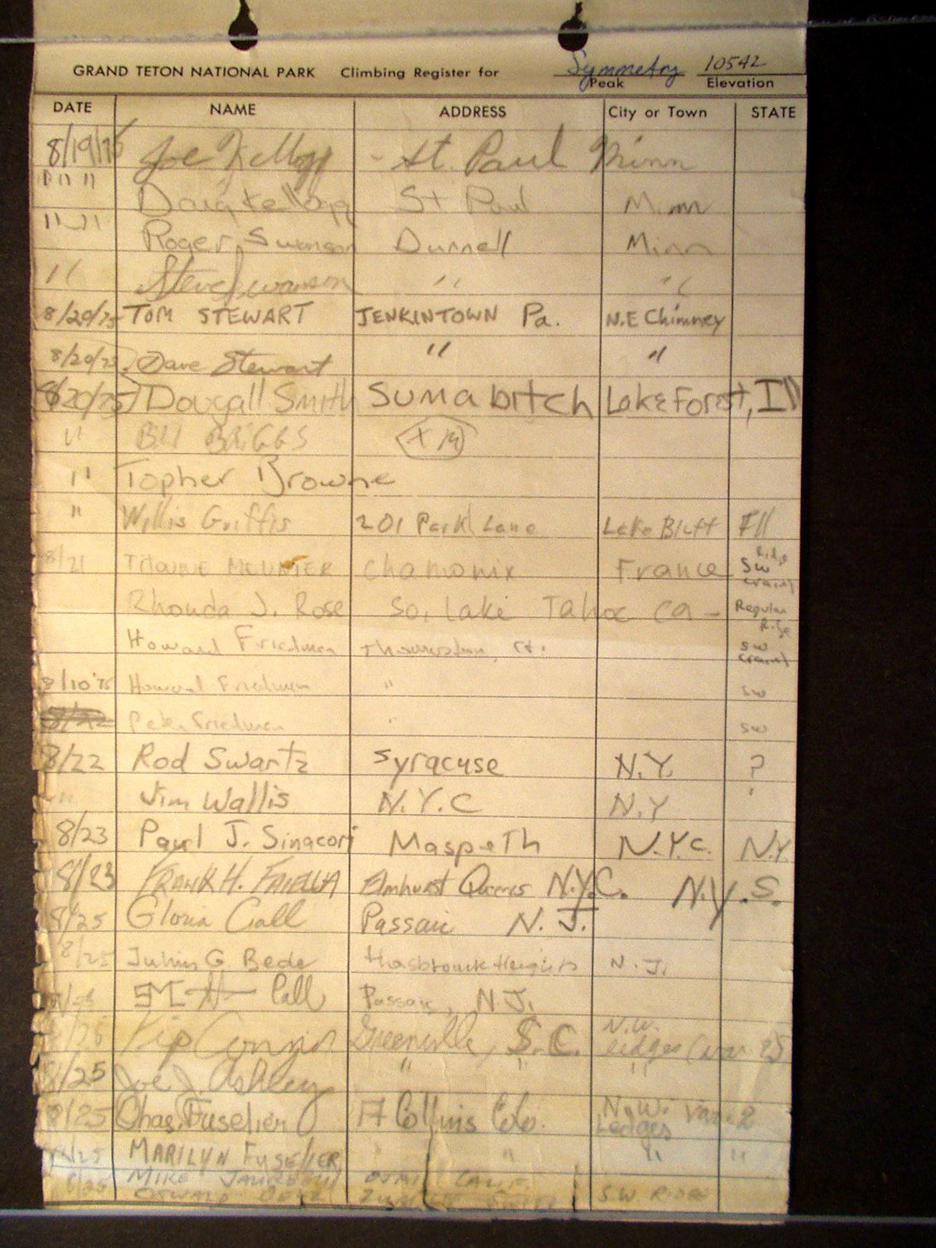 GRAND TETON NATIONAL PARK Climbing Register for Symmetry Peak 10542 Elevation
DATE NAME ADDRESS City or Town STATE
8/19/75 Joe Kellogg - St. Paul Minn
" " " Doug Kellogg St Paul Minn
" " " Roger Swanson Dunnell Minn
" Steve Swanson " "
8/20/75 TOM STEWART JENKINTOWN Pa. N.E Chimney
8/20/75 Dave Stewart " "
8/20/75 Dougall Smith Sumabitch Lake Forest, Ill
" Bill BRIGGS
" Topher Browne
" Willis Griffis 201 Park Lane Lake Bluff Ill
8/21 MEUNIER Chamonix France SW
Rhonda J. Rose So. Lake Tahoe Ca - Regular Ridge
Howard Friedman Ct. SW
8/10 '75 Howard Friedman " SW
8/22 Peter Friedman " SW
8/22 Rod Swartz Syracuse N.Y. ?
" Jim Wallis N.Y.C N.Y '
8/23 Paul J. Sinacori Maspeth N.Y.C. N.Y.
8/23 FRANK H. FAIELLA Elmhurst Queens N.Y.C. N.Y.S.
8/25 Gloria Call Passaic N.J.
8/25 Julius G Bede Hasbrouck Heights N.J.
Call Passaic, N.J.
Kip Greenville, S.C. N.W. Ledges
8/25 Joe J. Ashley " " "
8/25 Chas Fuselier Ft Collins Colo. N.W. Ledges Var 2
8/25 MARILYN FUSELIER " " " "
8/25 MIKE CALIF.
OSWALD S.W. RIDGE